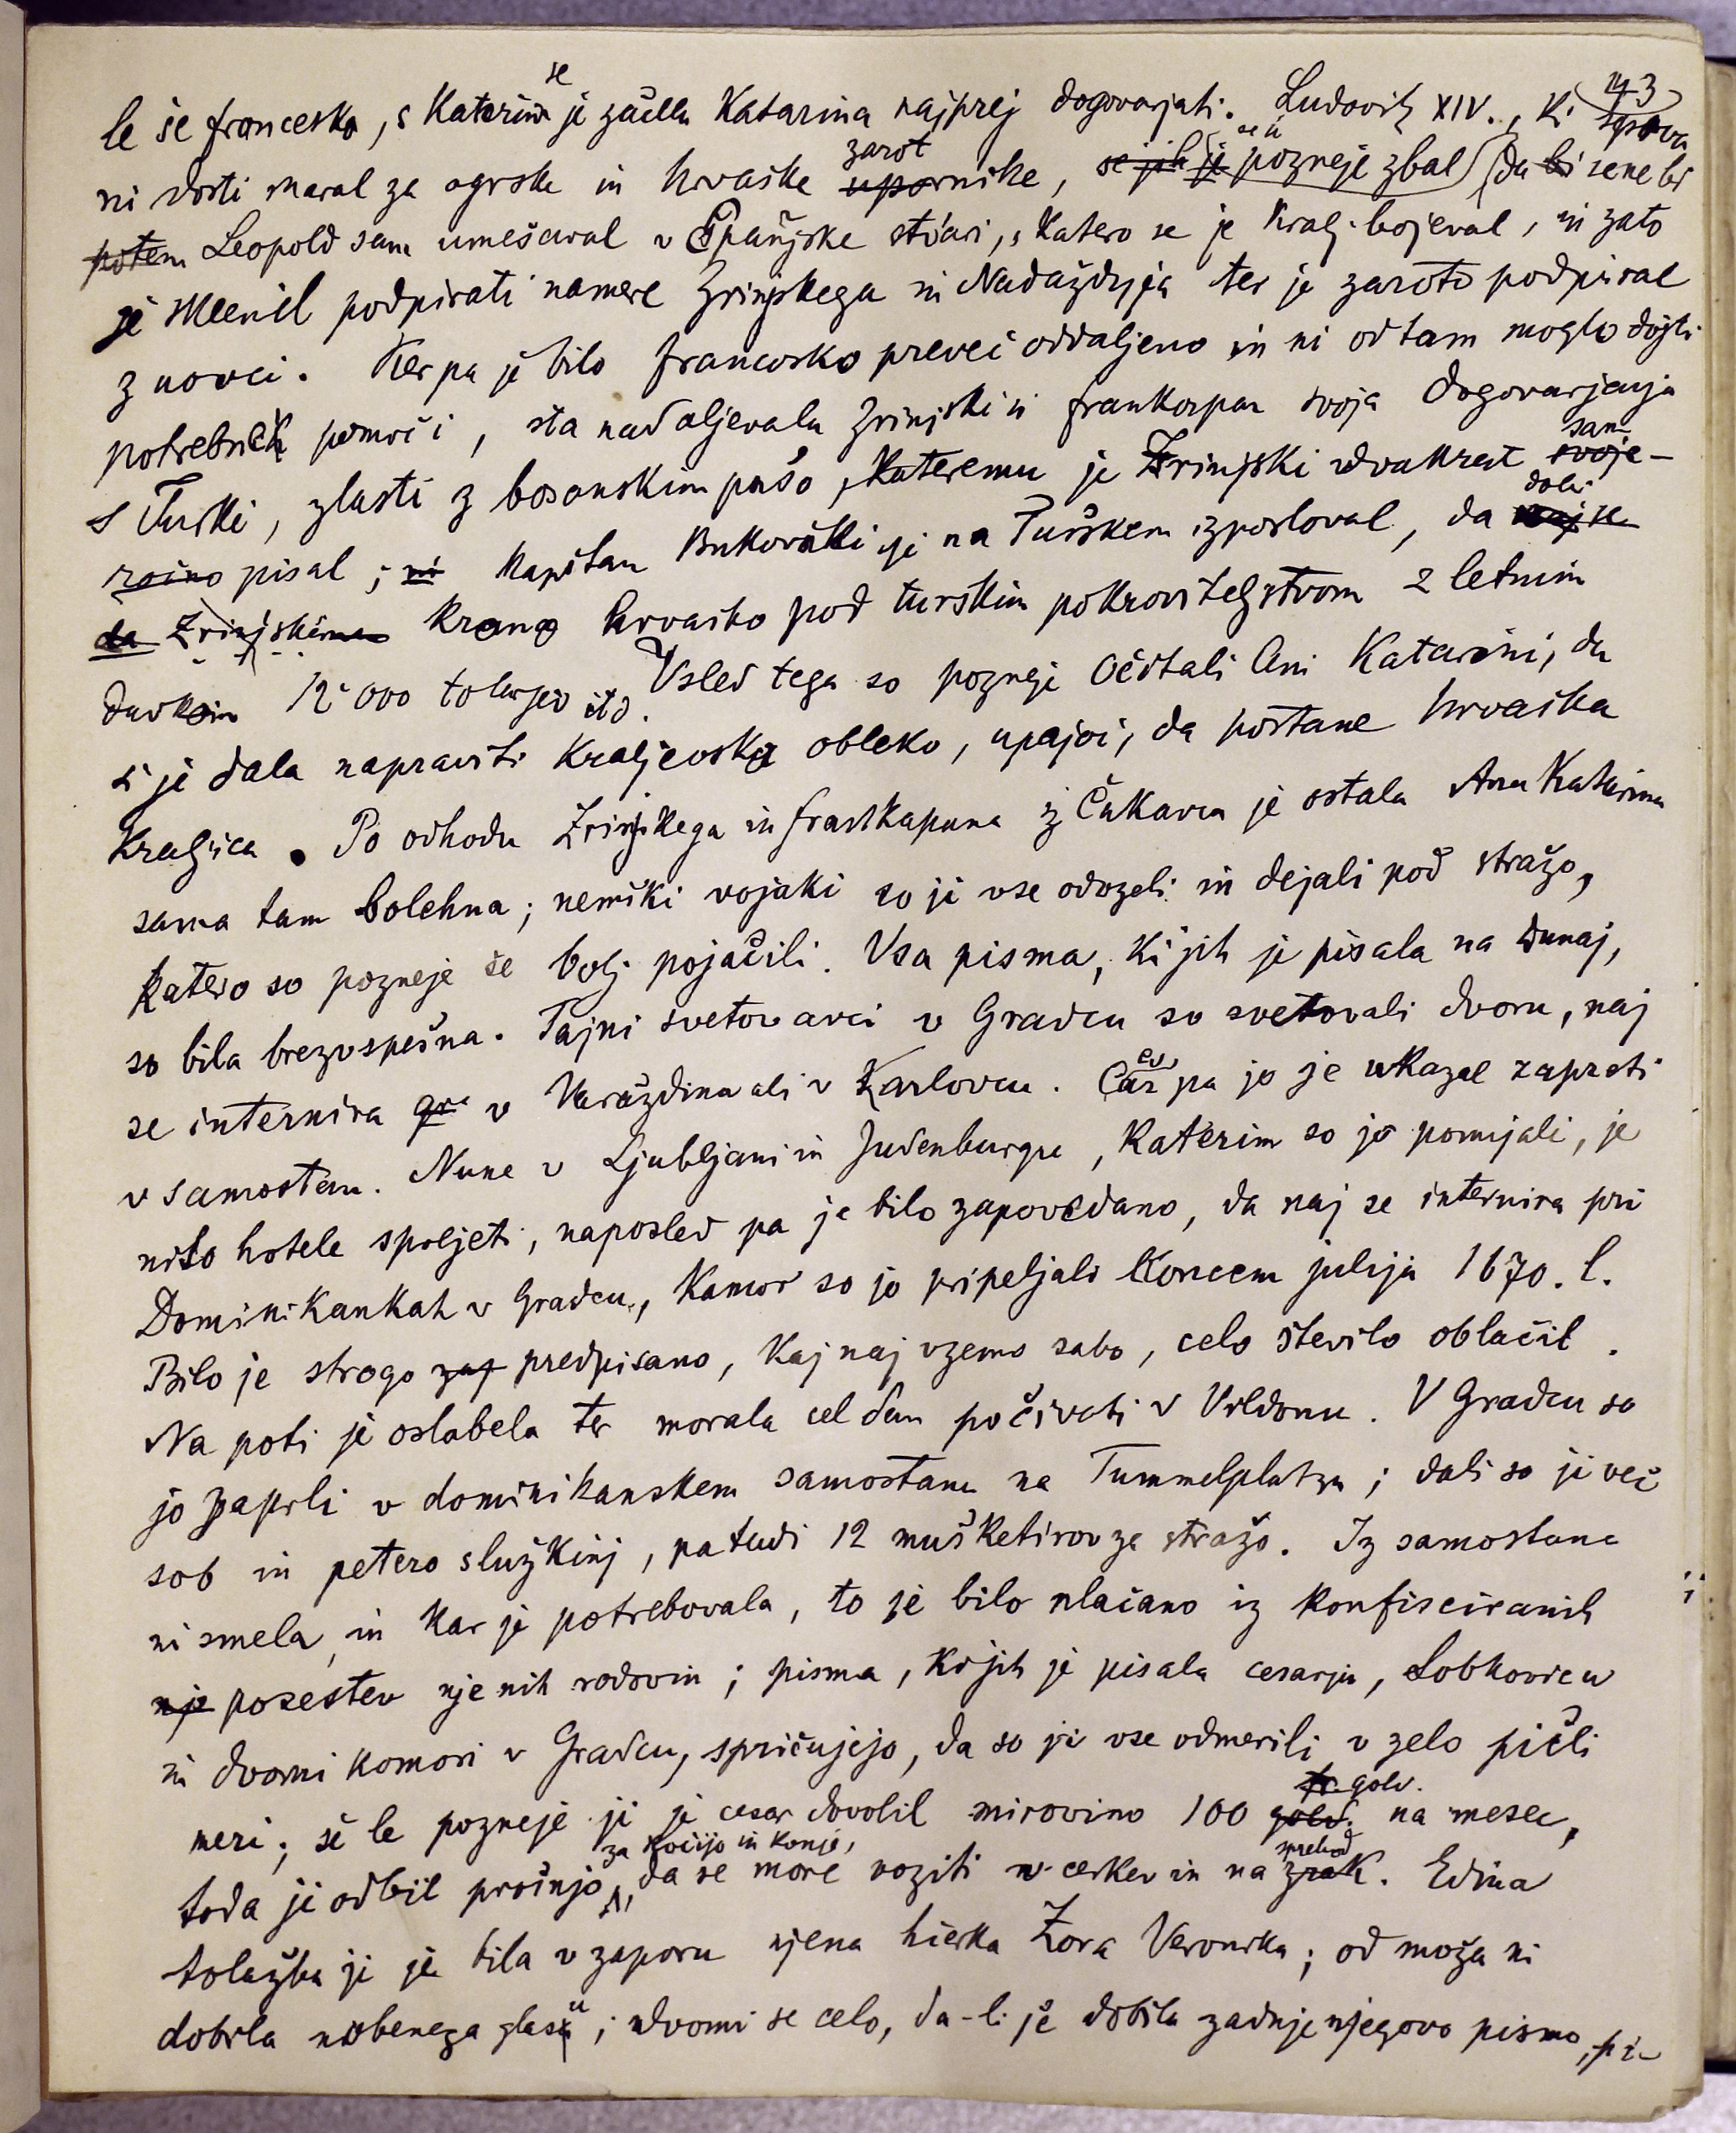 143
le še francosko, s katerim se je začela Katarina najprej dogovarjati. Ludovik XIV., ki sprva
ni dosti maral za ogrske in hrvaške zarotnike, se je pozneje zbal, da bi se ne bi
potem Leopold sam umešaval v španjske stvari, s katero se je kralj bojeval, in zato
je sklenil podpirati namere Zrinjskega in Nadaždyja ter je zaroto podpiral
z novci. Ker pa je bilo francosko preveč oddaljeno in ni od tam moglo dojti
potrebnih pomoči, sta nadaljevala Zrinjski in Frankopan svoja dogovarjanja
s Turki, zlasti z bosanskim pašo, kateremu je Zrinjski dvakrat sam
pisal; kapitan Bukovački je na Turškem izposloval, da dobi
Zrinjski krono hrvaško pod turskim pokroviteljstvom z letnim
davkom 12000 tolarjev itd. Vsled tega so pozneje očitali Ani Katarini, da
si je dala napraviti kraljevsko obleko, upajoč, da postane hrvaška
kraljica. Po odhodu Zrinjskega in Frankapana iz Čakovca je ostala Ana Katarina
sama tam bolehna; nemški vojaki so ji vse odvzeli in dejali pod stražo,
katero so pozneje še bolj pojačili. Vsa pisma, ki jih je pisala na Dunaj,
so bila brezvspešna. Tajni svetovavci v Gradcu so svetovali dvoru, naj
se internira v Varaždinu ali v Karlovcu. Cesar pa jo je ukazal zapreti
v samostan. Nune v Ljubljani in Judenburgu, katerim so jo ponujali, je
niso hotele sprejeti, naposled pa je bilo zapovedano, da naj se internira pri
Dominikankah v Gradcu, kamor so jo pripeljali koncem julija 1670. l.
Bilo je strogo predpisano, kaj naj vzeme sabo, celo število oblačil.
Na poti je oslabela ter morala cel dan počivati v Vildonu. V Gradcu so
jo zaprli v dominikanskem samostanu na Tummelplatzu; dali so ji več
sob in petero služkinj, pa tudi 12 mušketirov za stražo. Iz samostana
ni smela, in kar je potrebovala, to je bilo plačano iz konfisciranih
posestev njenih rodovin; pisma, ki jih je pisala cesarju, Lobkovicu
in dvorni komori v Gradcu, spričujejo, da so ji vse odmerili v zelo pičli
meri; še le pozneje ji je cesar dovolil mirovino 100 gold. na mesec,
toda ji odbil prošnjo za kočijo in konje, da se more voziti v cerkev in na sprehod. Edina
tolažba ji je bila v zaporu njena hčerka Zora Veronika; od moža ni
dobila nobenega glasu; dvomi se celo, da-li je dobila zadnje njegovo pismo, pi-